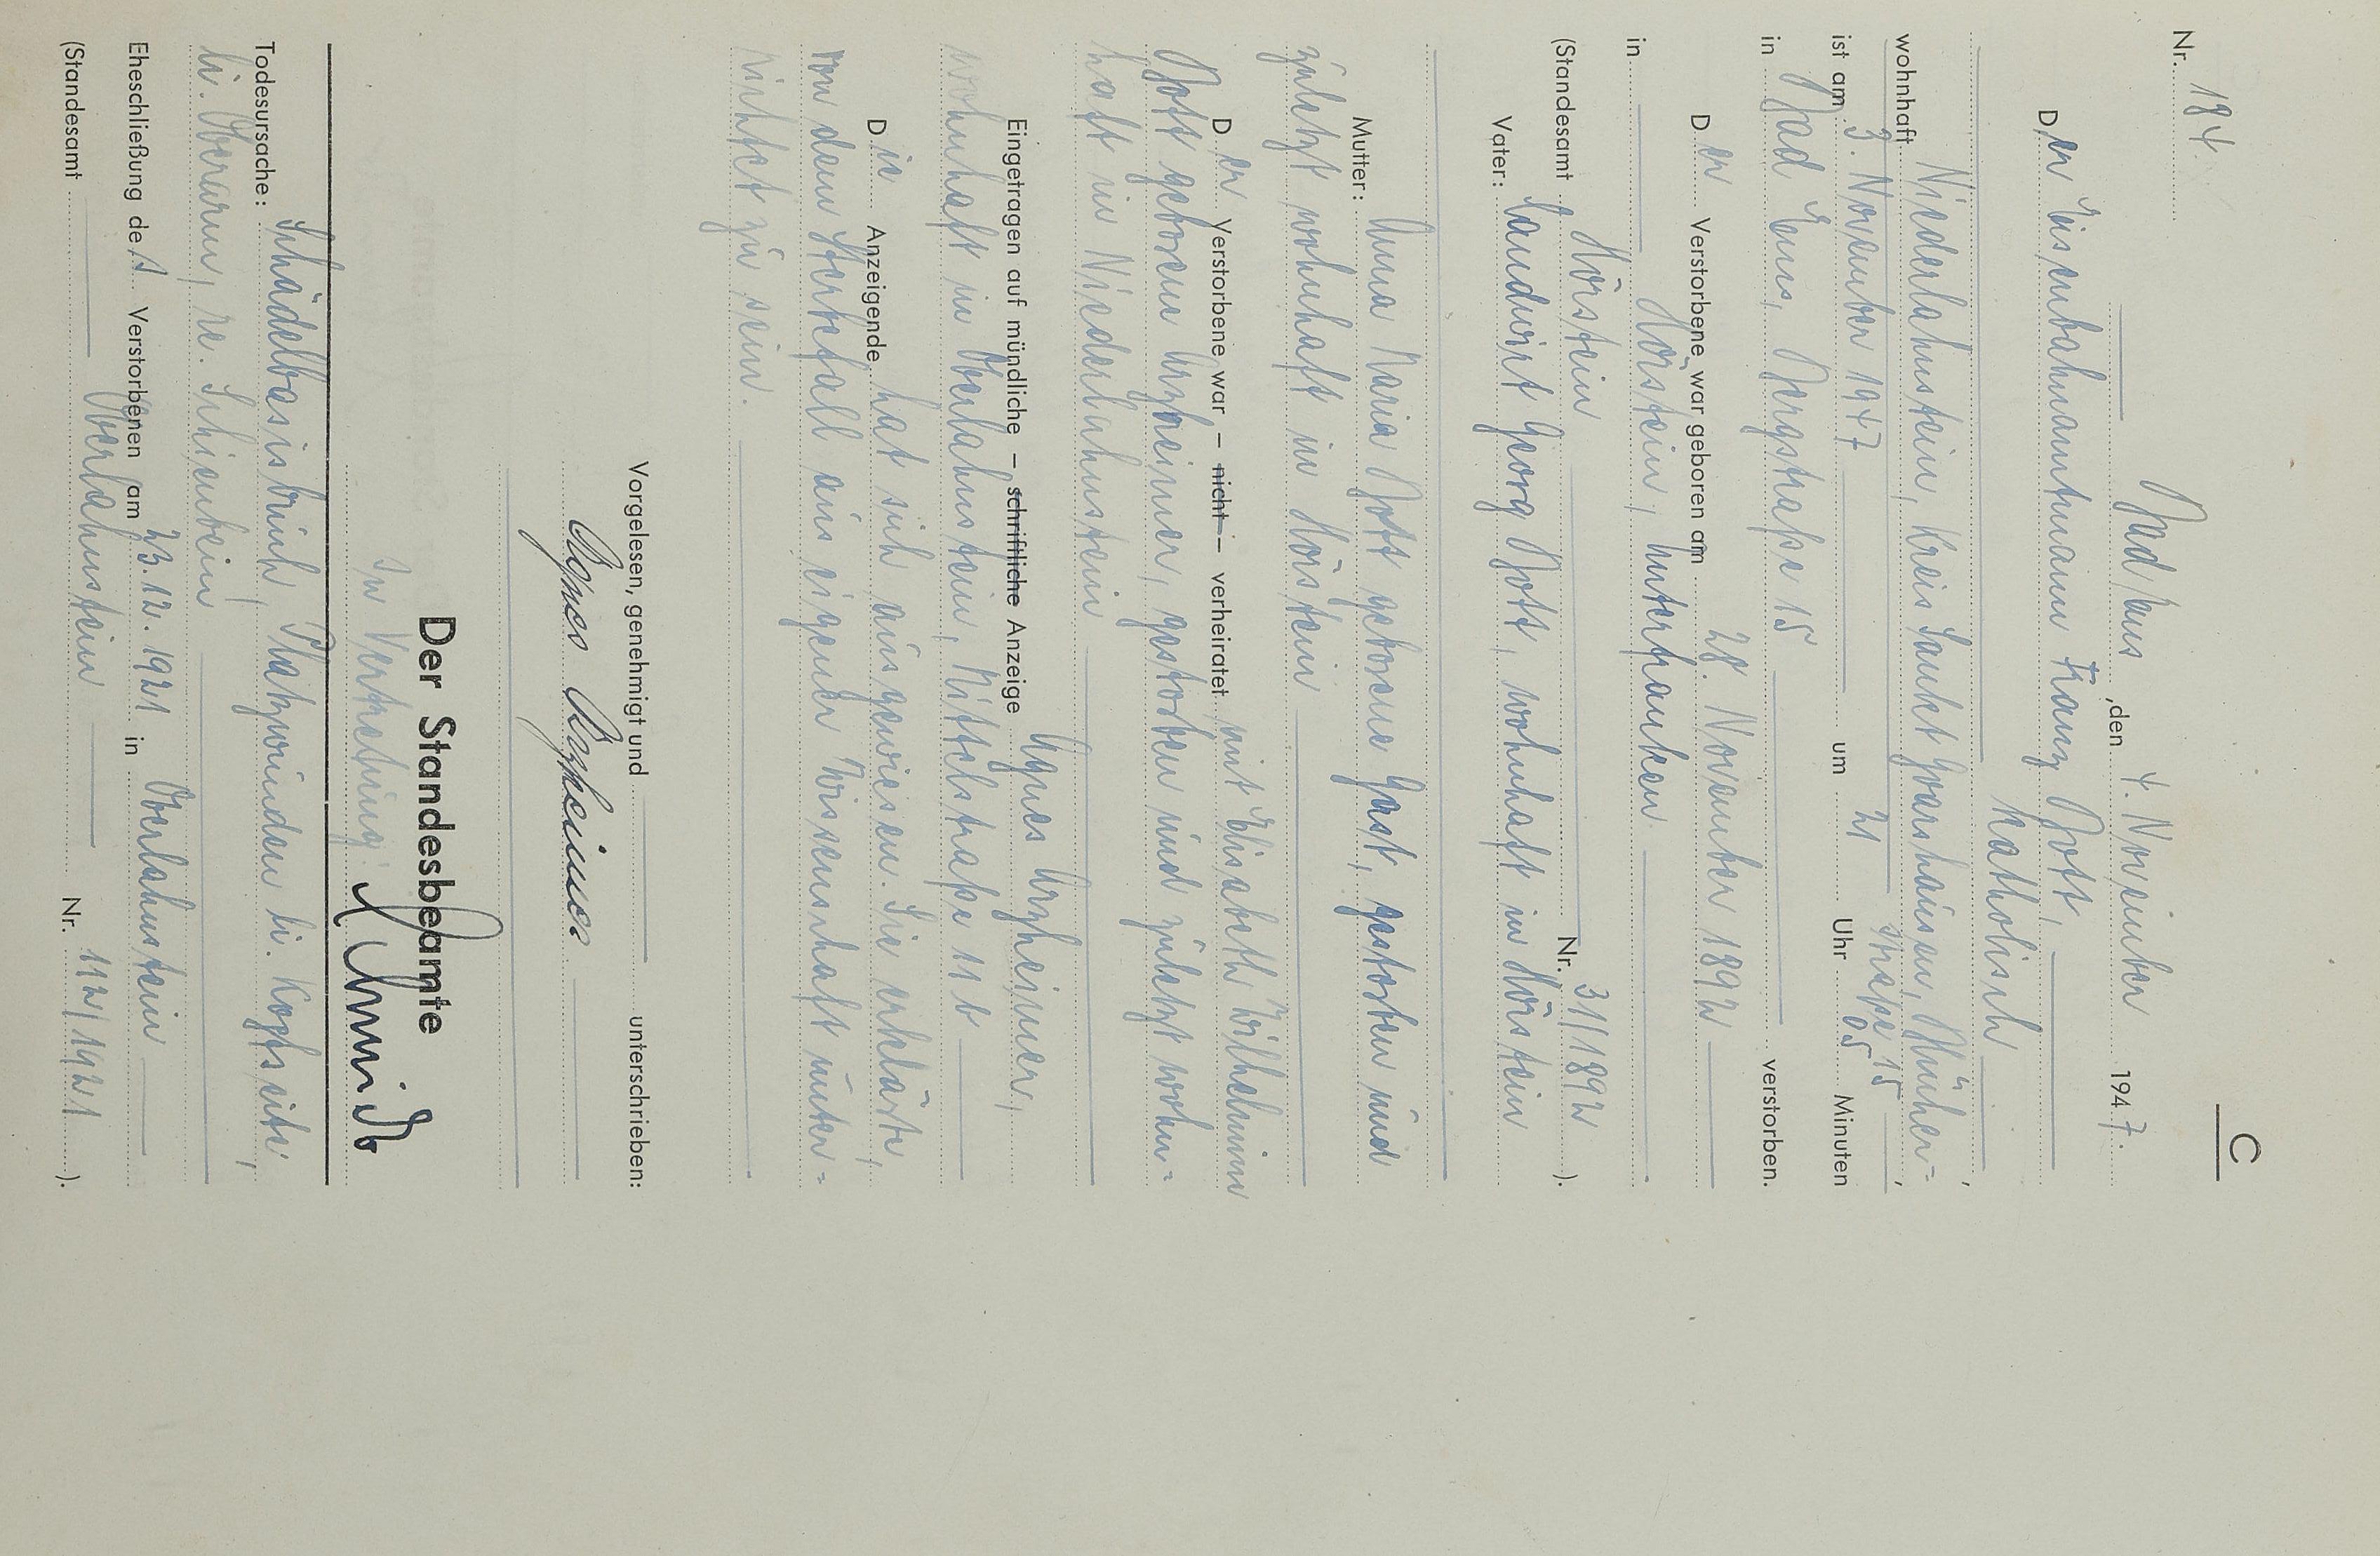 C
Nr. 184
Bad Ems, den 4. November 1947.
Der Eisenbahnamtmann Franz Bott,
katholisch,
wohnhaft Niederlahnstein, Kreis Sankt Goarshausen,
straße 15,
ist am 3. November 1947 um 21 Uhr 05 Minuten
in Bad Ems, Bergstraße 15 verstorben.
Der Verstorbene war geboren am 28. November 1892
in Hörstein, Unterfranken
(Standesamt Hörstein Nr. 31/1892 ).
Vater: Landwirt Georg Bott, wohnhaft in Hörstein
Mutter: Anna Maria Bott geborene Gast, gestorben und
zuletzt wohnhaft in Hörstein
Der Verstorbene war – nicht – verheiratet mit Elisabeth Wilhelmine
Bott geborene Arzheimer, gestorben und zuletzt wohn=
haft in Niederlahnstein
Eingetragen auf mündliche – schriftliche Anzeige Agnes Arzheimer,
wohnhaft in Oberlahnstein, Mittelstraße 11 b
Die Anzeigende hat sich ausgewiesen. Sie erklärte,
von dem Sterbefall aus eigener Wissenschaft unter=
richtet zu sein.
Vorgelesen, genehmigt und unterschrieben:
Agnes Arzheimer
Der Standesbeamte
In Vertretung:
Schmidt
Todesursache: Schädelbasisbruch, Platzwunden li. Kopfseite,
li. Oberarm, re. Schienbein
Eheschließung des Verstorbenen am 23.12.1921 in Oberlahnstein
(Standesamt Oberlahnstein Nr. 112/1921 ).